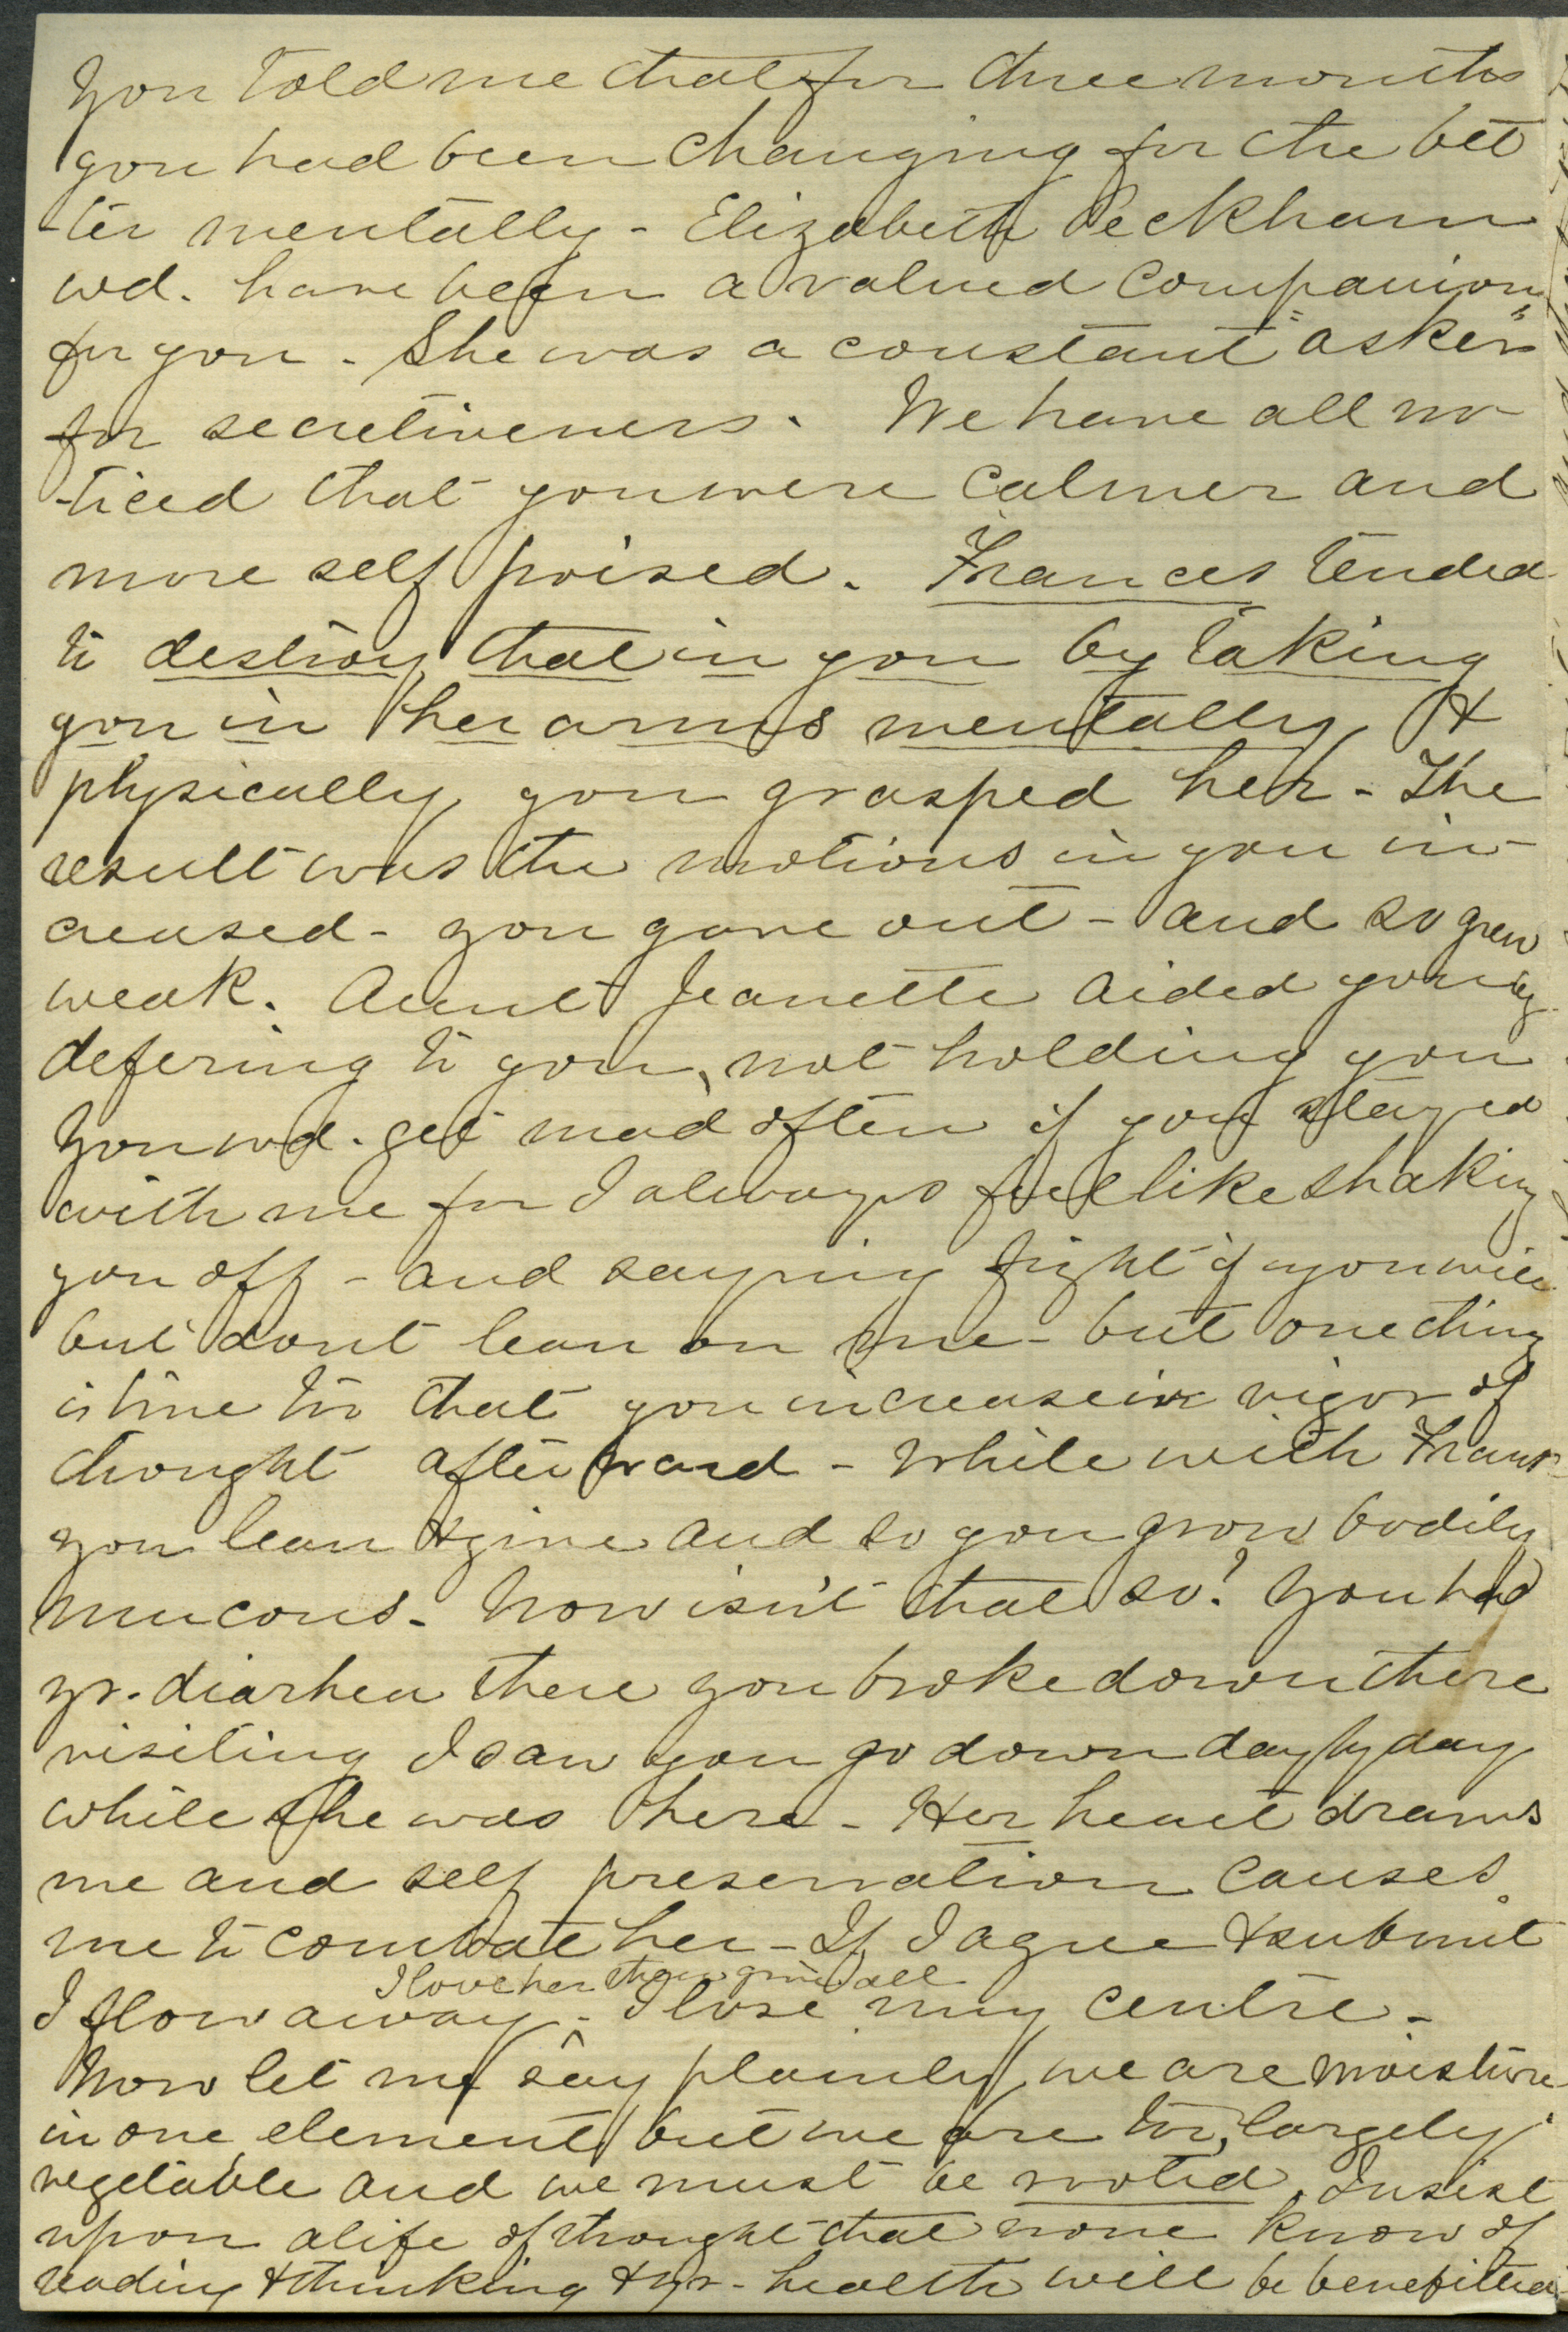 You told me that for three months
you had been changing for the bet
-ter mentally - Elizabeth Peckham
wd. have been a valued companion
for you. She was a constant "asker"
for secretiveness. We have all no-
-ticed that you were calmer and
more self poised. Frances tended
to destroy that in you by taking
you in her arms mentally, &
physically you grasped her - The
result was the motions in you in-
creased - you gave out - and so grew
weak. Aunt Jeanette aided you by
defering to you, not holding you
You wd. get mad often if you stayed
with me for I always feel like shaking
you off - and saying fight if you will
but dont lean on me - but one thing
is true too that you increase in vigor of
thought afterward - While with Frans
you lean & give and so you grow bodily
mucous. Now isn't that so? You had
yr. diarhea there you broke down there
visiting I saw you go down day by day
while she was here - Her heart draws
me and self preservation causes
me to combate her - If I agree & submit
I love her then give all
I flow away - I lose my centre -
Now let me say plainly we are moisture
in one element but we are too, largely
vegetable and we must be rooted. Insist
upon a life of thought that none know of
reading & thinking & yr - health will be benefitted